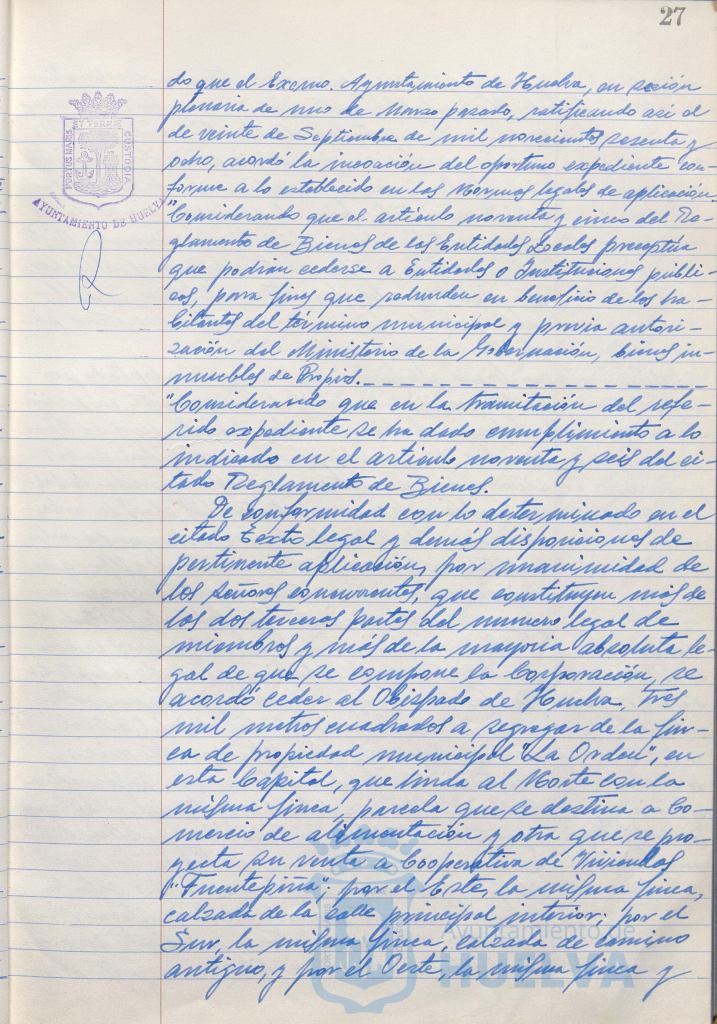 27
do que el Excmo. Ayuntamiento de Huelva, en sesión
plenaria de uno de Marzo pasado, ratificando así el
de veinte de Septiembre de mil novecientos sesenta y
ocho, acordó la incoación del oportuno expediente con-
forme a lo establecido en las Normas legales de aplicación.
"Considerando que el artículo noventa y cinco del Re-
glamento de Bienes de las Entidades Locales preceptúa
que podrán cederse a Entidades o Instituciones públi-
cas, para fines que redunden en beneficio de los ha-
bitantes del término municipal y previa autori-
zación del Ministerio de la Gobernación, bienes in-
muebles de Propios.
"Considerando que en la tramitación del refe-
rido expediente se ha dado cumplimiento a lo
indicado en el artículo noventa y seis del ci-
tado Reglamento de Bienes.
De conformidad con lo determinado en el
citado Texto legal y demás disposiciones de
pertinente aplicación, por unanimidad de
los señores concurrentes, que constituyen más de
las dos terceras partes del numero legal de
miembros y más de la mayoria absoluta le-
gal de que se compone la Corporación, se
acordó ceder al Obispado de Huelva, tres
mil metros cuadrados a segregar de la fin-
ca de propiedad municipal "La Orden", en
esta Capital, que linda al Norte con la
misma finca, parcela que se destina a Co-
mercio de alimentación y otra que se pro-
yecta su venta a Cooperativa de Viviendas
"Fuentepiña"; por el Este, la misma finca,
calzada de la calle principal interior; por el
Sur, la misma finca, calzada de camino
antiguo, y por el Oeste, la misma finca y
PORTUS MARIS ET TERRÆ CUSTODIA
AYUNTAMIENTO DE HUELVA
Ayuntamiento de
HUELVA